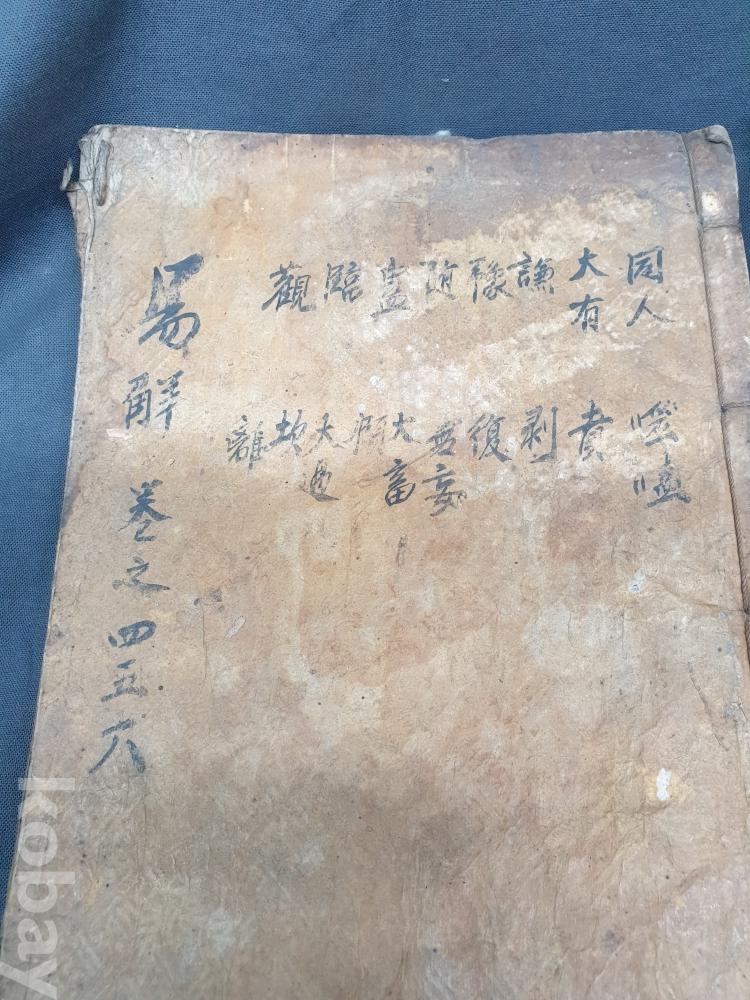 同人 大有 謙 豫 隨 蠱 臨 觀
噬嗑 賁 剥 復 无妄 大畜 頤 大過 坎 離
易解 卷之四五六
kobay